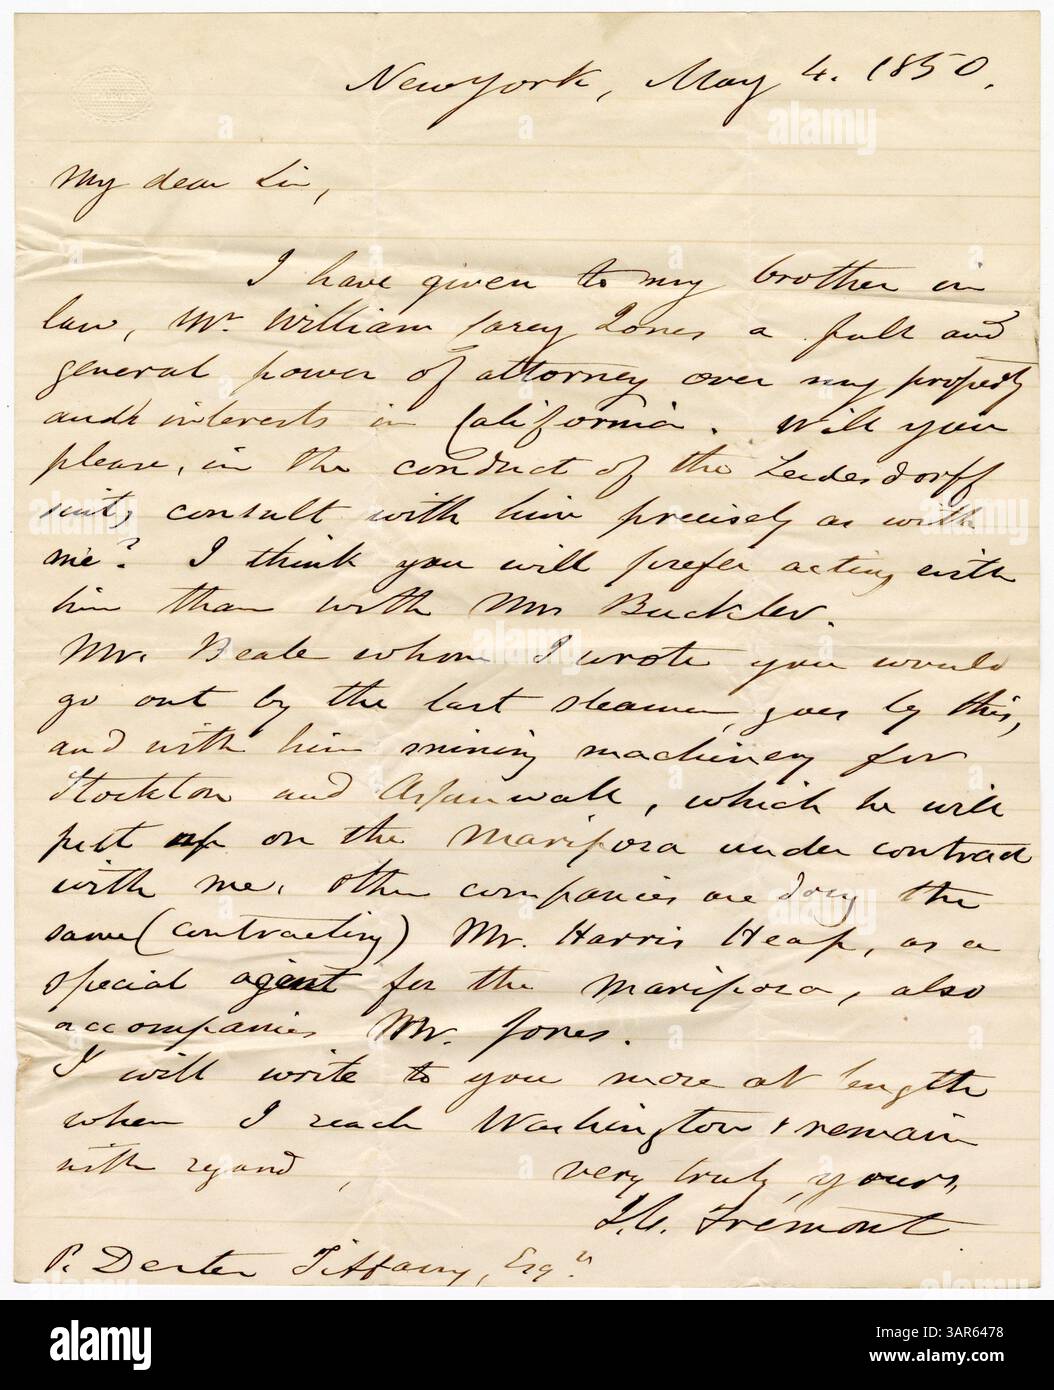 New York, May 4. 1850.
My dear Sir,
I have given to my brother in
law, Mr. William Carey Jones a full and
general power of attorney over my property
and interests in California. Will you
please, in the conduct of the Leidesdorff
suit, consult with him precisely as with
me? I think you will prefer acting with
him than with Mr Buckler.
Mr. Beale whom I wrote you would
go out by the last steamer, goes by this,
and with him mining machinery for
Stockton and Aspinwall, which he will
put up on the Mariposa under contract
with me. Other companies are doing the
same (contracting) Mr. Harris Heap, as a
special agent for the Mariposa, also
accompanies Mr. Jones.
I will write to you more at length
when I reach Washington & remain
with regard, very truly yours,
J.C. Fremont
P. Dexter Tiffany, Esqr.
alamy
a
alamy
Image ID: 3AR6478
www.alamy.com